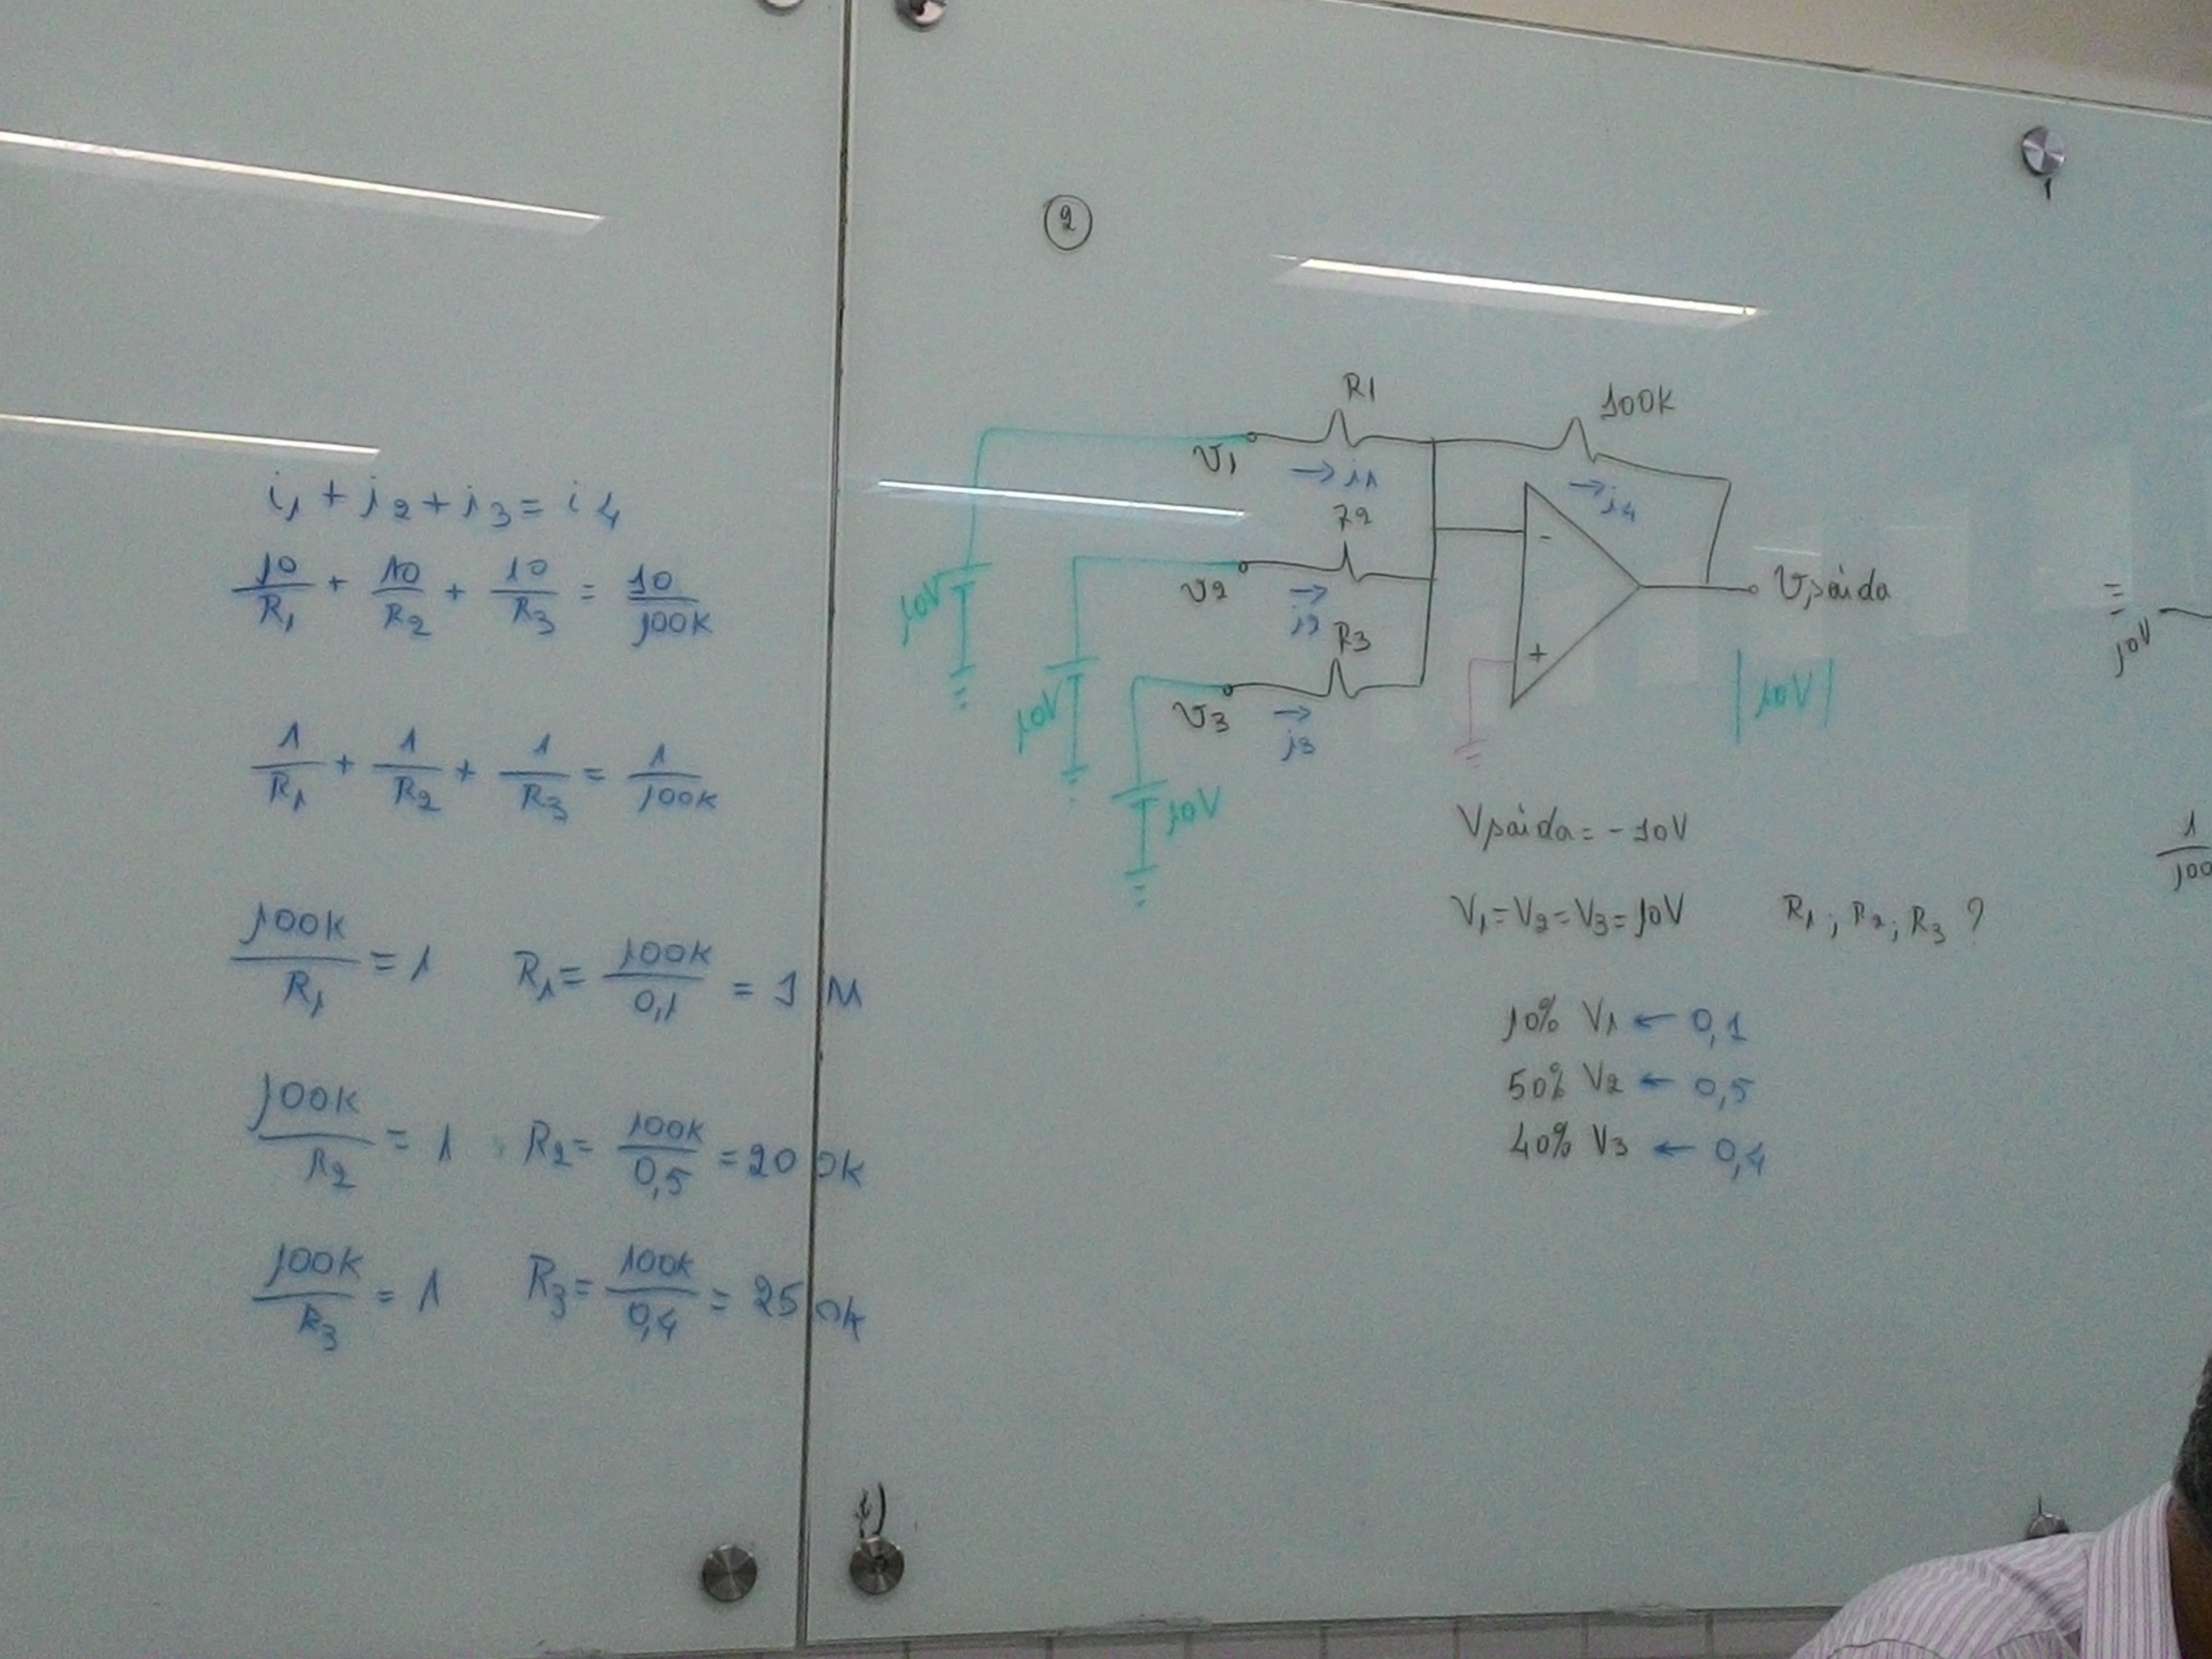 i1 + i2 + i3 = i4
10/R1 + 10/R2 + 10/R3 = 10/100K
1/R1 + 1/R2 + 1/R3 = 1/100K
100K/R1 = 1 R1 = 100K/0,1 = 1M
100K/R2 = 1 R2 = 100K/0,5 = 200K
100K/R3 = 1 R3 = 100K/0,4 = 250K
2
R1
100K
V1
→ i1
→ i4
R2
10V
V2
→ i2
-
Vsaída
R3
10V
V3
→ i3
+
|10V|
10V
Vsaída = -10V
V1 = V2 = V3 = 10V R1; R2; R3 ?
10% V1 ← 0,1
50% V2 ← 0,5
40% V3 ← 0,4
=
10V
1/100